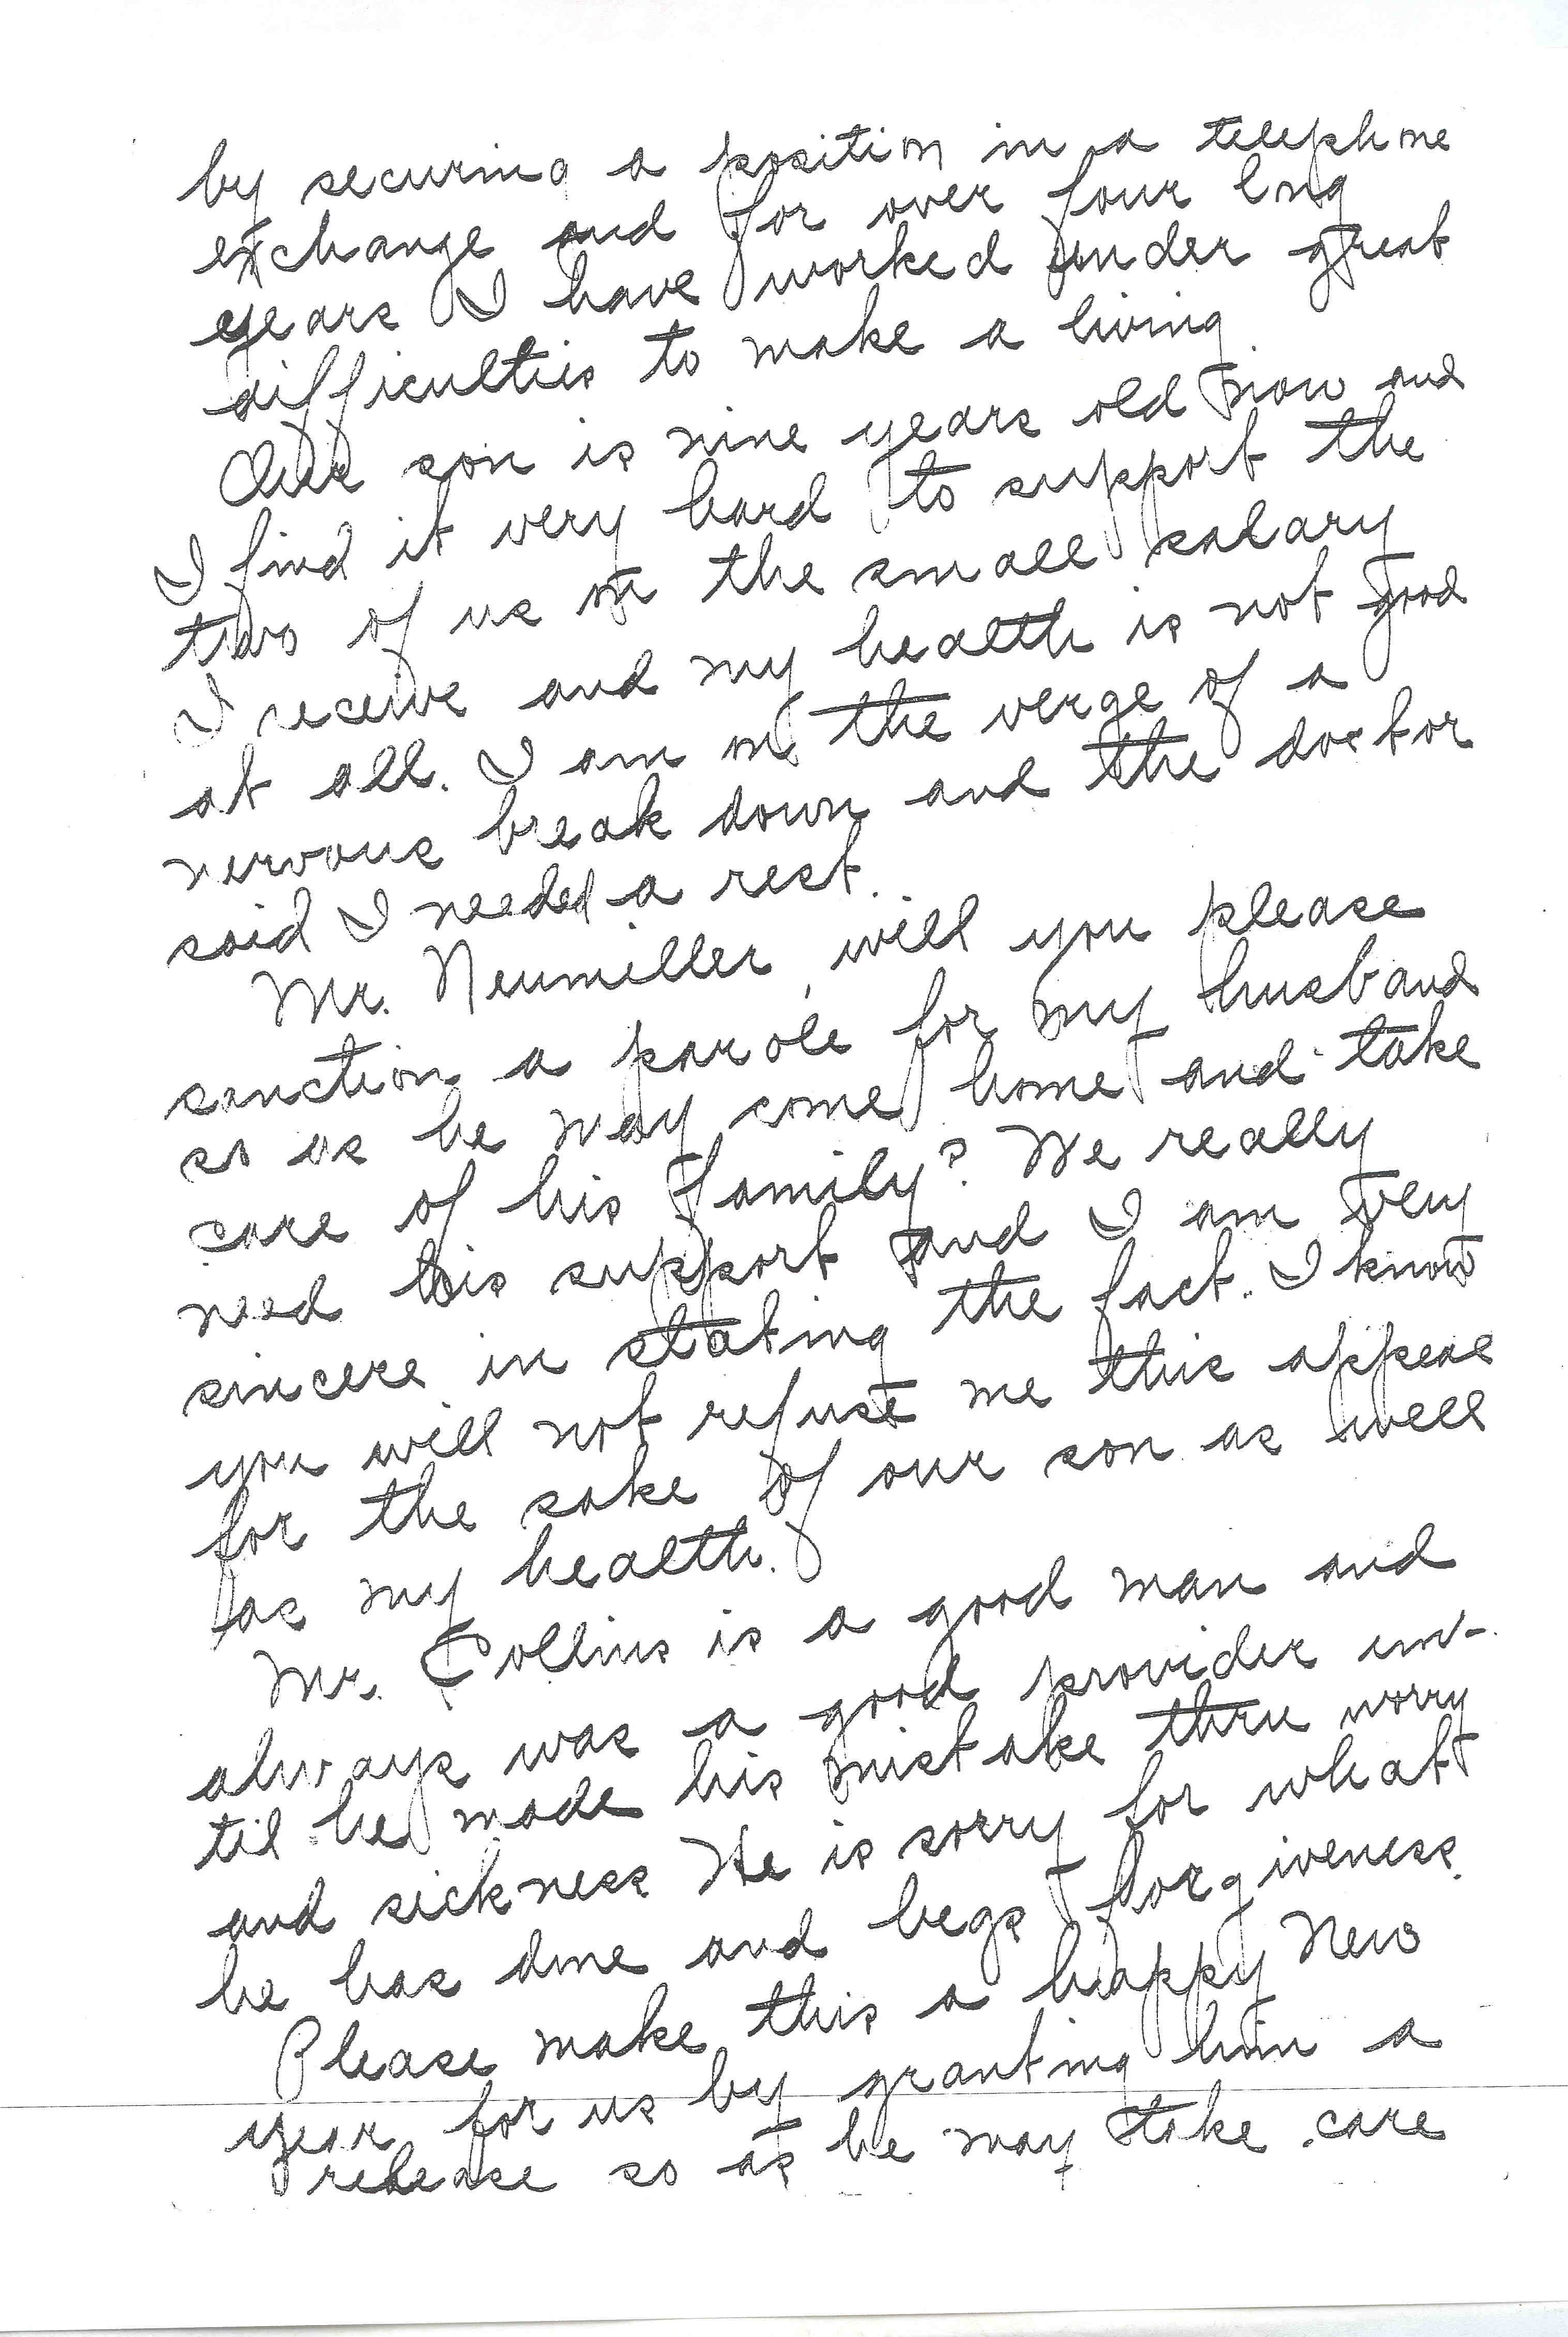 by securing a position in a telephone
exchange and for over four long
years I have worked under great
difficulties to make a living.
Our son is nine years old now and
I find it very hard to support the
two of us on the small salary
I receive and my health is not good
at all. I am on the verge of a
nervous break down and the doctor
said I needed a rest.
Mr. Neumiller, will you please
sanction a parole for my husband
so as he may come home and take
care of his family? We really
need his support and I am very
sincere in stating the fact. I know
you will not refuse me this appeal
for the sake of our son as well
as my health.
Mr. Collins is a good man and
always was a good provider un-
til he made his mistake thru worry
and sickness. He is sorry for what
he has done and begs forgiveness.
Please make this a happy New
year for us by granting him a
release so as he may take care